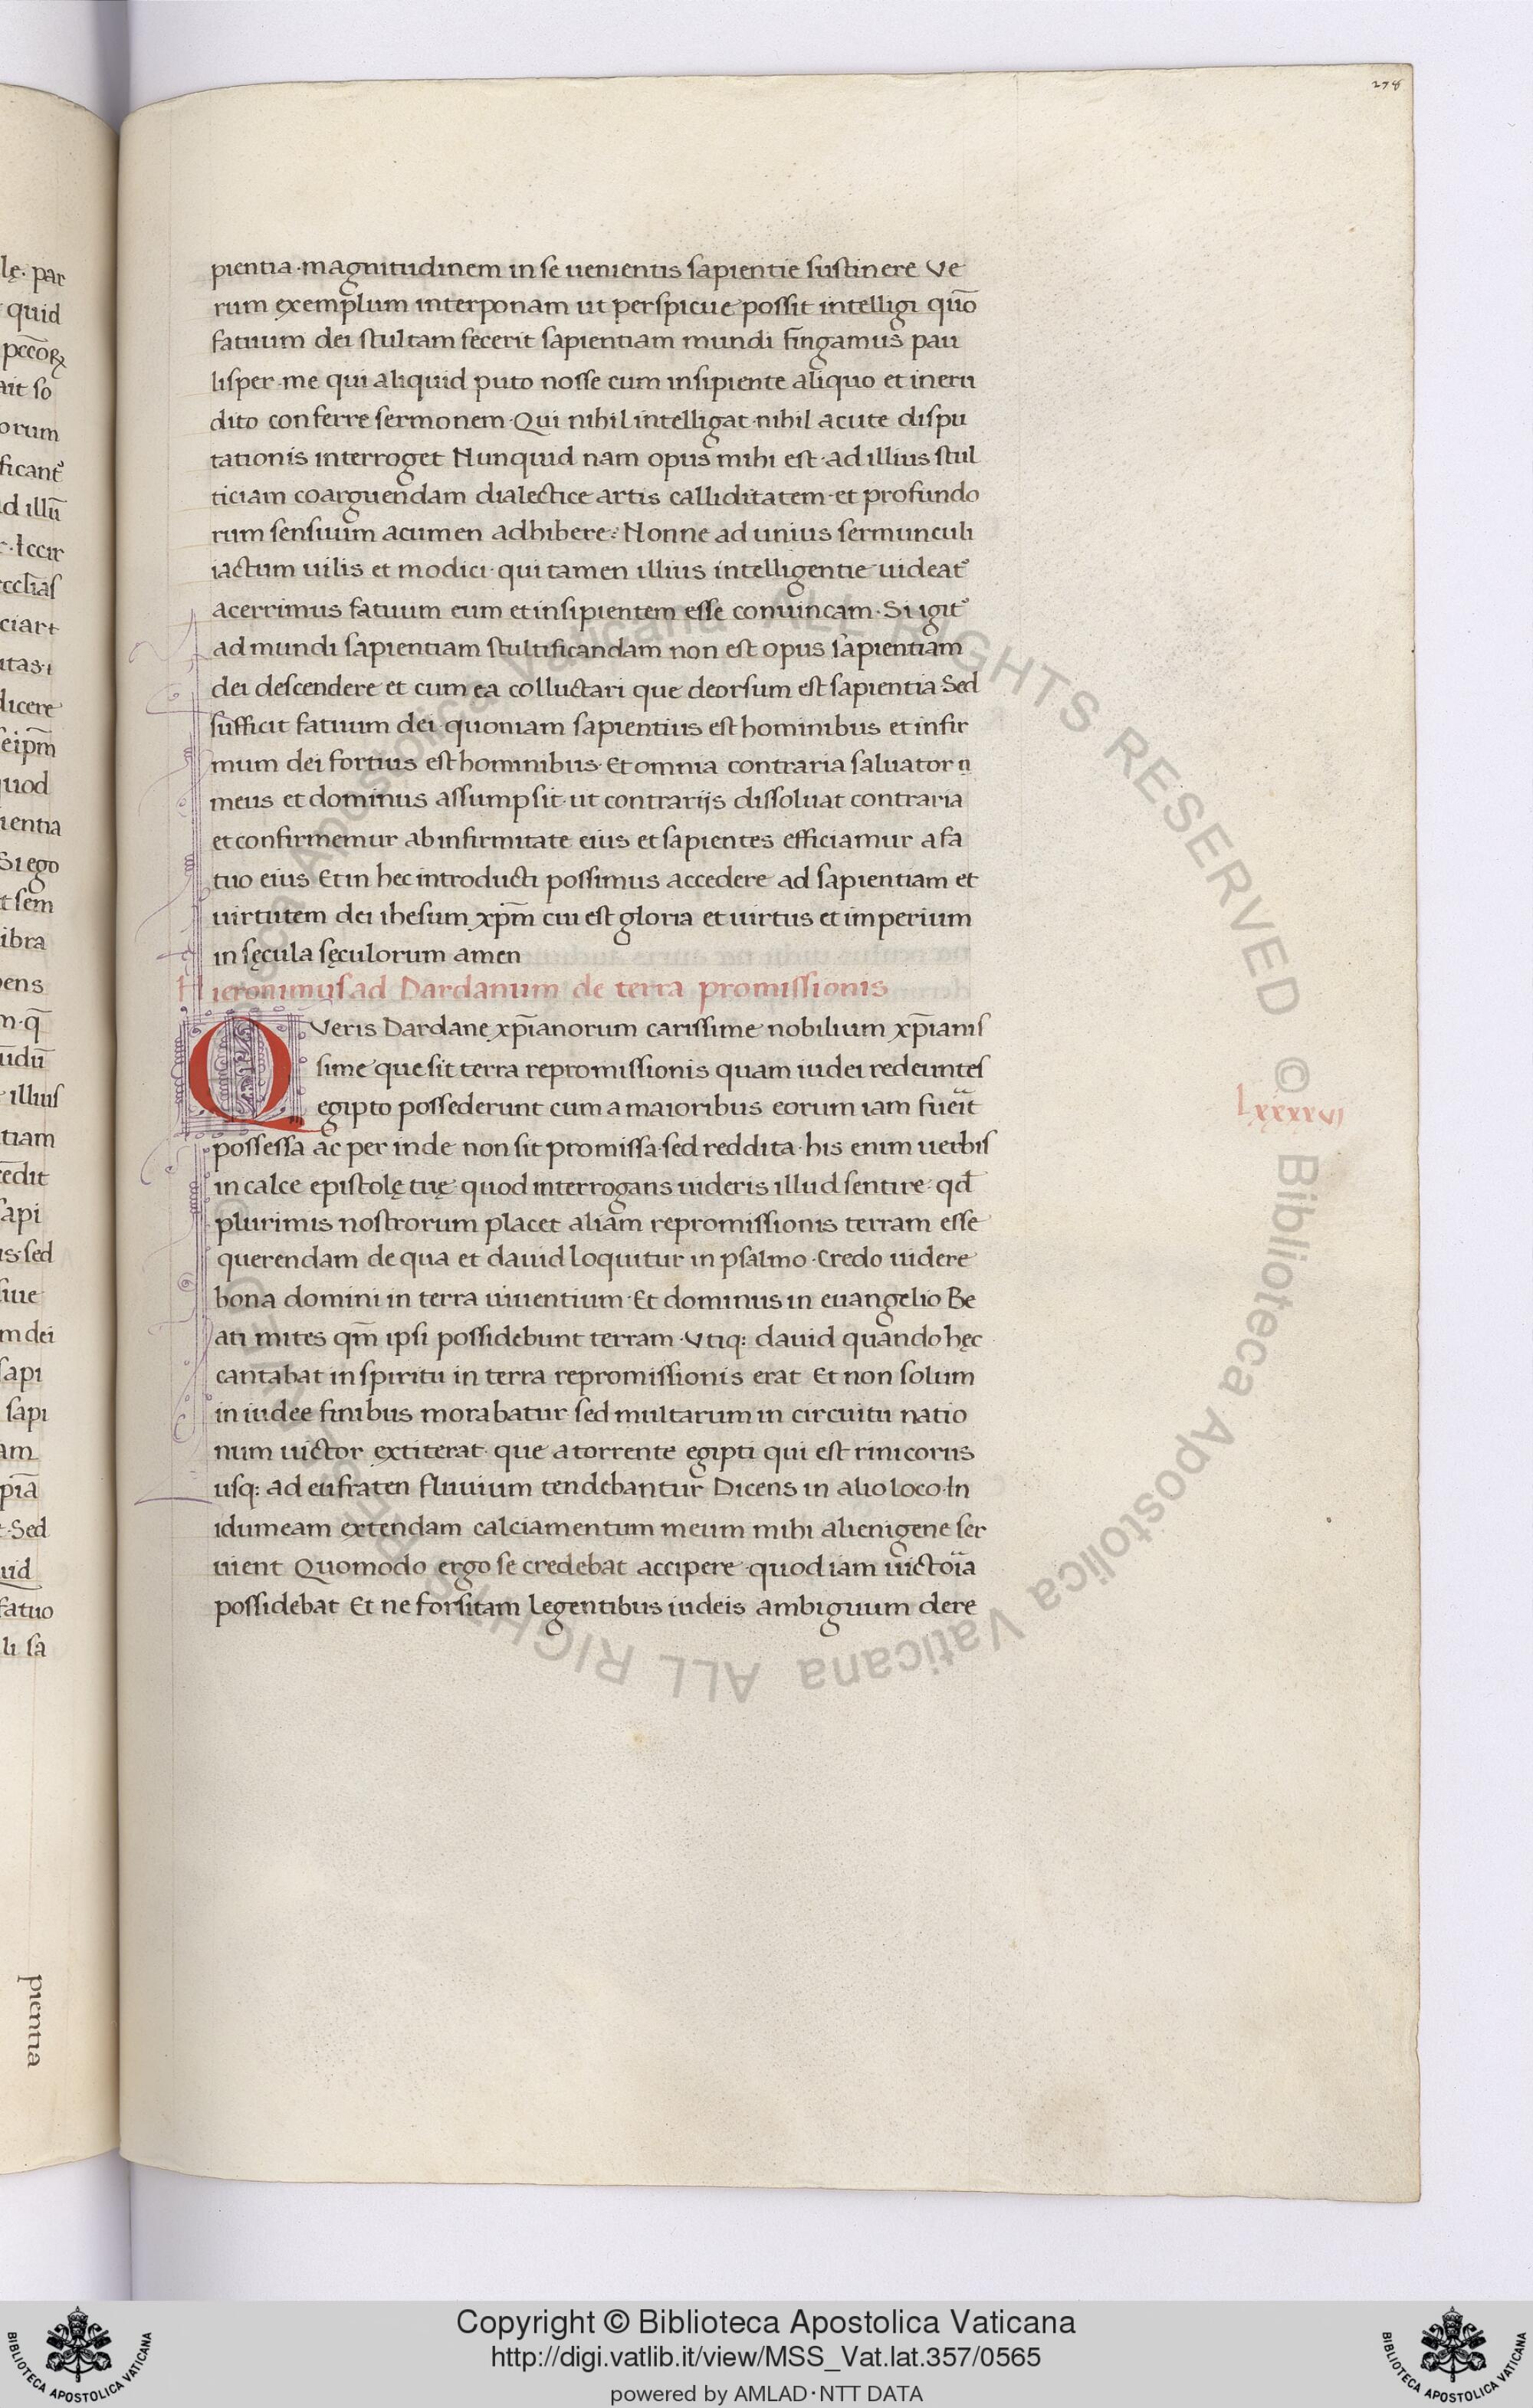 278
pientia·magnitudinem in se uenientis sapientie sustinere Ve
rum exemplum interponam ut perspicue possit intelligi quō
fatuum dei stultam fecerit sapientiam mundi fingamus pau
lisper·me qui aliquid puto nosse cum insipiente aliquo et ineru
dito conferre sermonem·Qui nihil intelligat·nihil acute dispu
tationis interroget Nunquid nam opus mihi est·ad illius stul
ticiam coarguendam dialectice artis calliditatem·et profundo
rum sensuum acumen adhibere: Nonne ad unius sermunculi
iactum uilis et modici·qui tamen illius intelligentie uideat᷒
acerrimus fatuum eum et insipientem esse conuincam·Si igit᷒
ad mundi sapientiam stultificandam non est opus sapientiam
dei descendere et cum ea colluctari que deorsum est sapientia Sed
sufficit fatuum dei·quoniam sapientius est hominibus et infir
mum dei fortius est hominibus·Et omnia contraria saluator
meus et dominus assumpsit·ut contrarijs dissoluat contraria
et confirmemur ab infirmitate eius et sapientes efficiamur a fa
tuo eius Et in hec introducti possimus accedere ad sapientiam et
uirtutem dei ihesum xp̄m cui est gloria et uirtus et imperium
in sęcula sęculorum amen
Hieronimus ad Dardanum de terra promissionis
QVeris Dardane xp̄ianorum carissime nobilium xp̄ianis
sime que sit terra repromissionis quam iudei redeuntes
egipto possederunt cum a maioribus eorum iam fuerit
Lxxxxvi
possessa ac per inde non sit promissa·sed reddita·his enim uerbis
in calce epistolę tuę·quod interrogans uideris illud sentire·qđ
plurimis nostrorum placet aliam repromissionis terram esse
querendam de qua et dauid loquitur in psalmo·Credo uidere
bona domini in terra uiuentium·Et dominus in euangelio Be
ati mites qm̄ ipsi possidebunt terram·Vtiq: dauid quando hęc
cantabat in spiritu in terra repromissionis erat Et non solum
in iudee finibus morabatur sed multarum in circuitu natio
num uictor extiterat·que a torrente egipti qui est rinicorus
usq: ad eufraten fluuium tendebantur Dicens in alio loco·In
idumeam extendam calciamentum meum mihi alienigene ser
uient Quomodo ergo se credebat accipere·quod iam uictoria
possidebat Et ne forsitam legentibus iudeis ambiguum dere
pientia
© Biblioteca Apostolica Vaticana ALL RIGHTS RESERVED
Copyright © Biblioteca Apostolica Vaticana
http://digi.vatlib.it/view/MSS_Vat.lat.357/0565
powered by AMLAD·NTT DATA
BIBLIOTECA APOSTOLICA VATICANA
BIBLIOTECA APOSTOLICA VATICANA